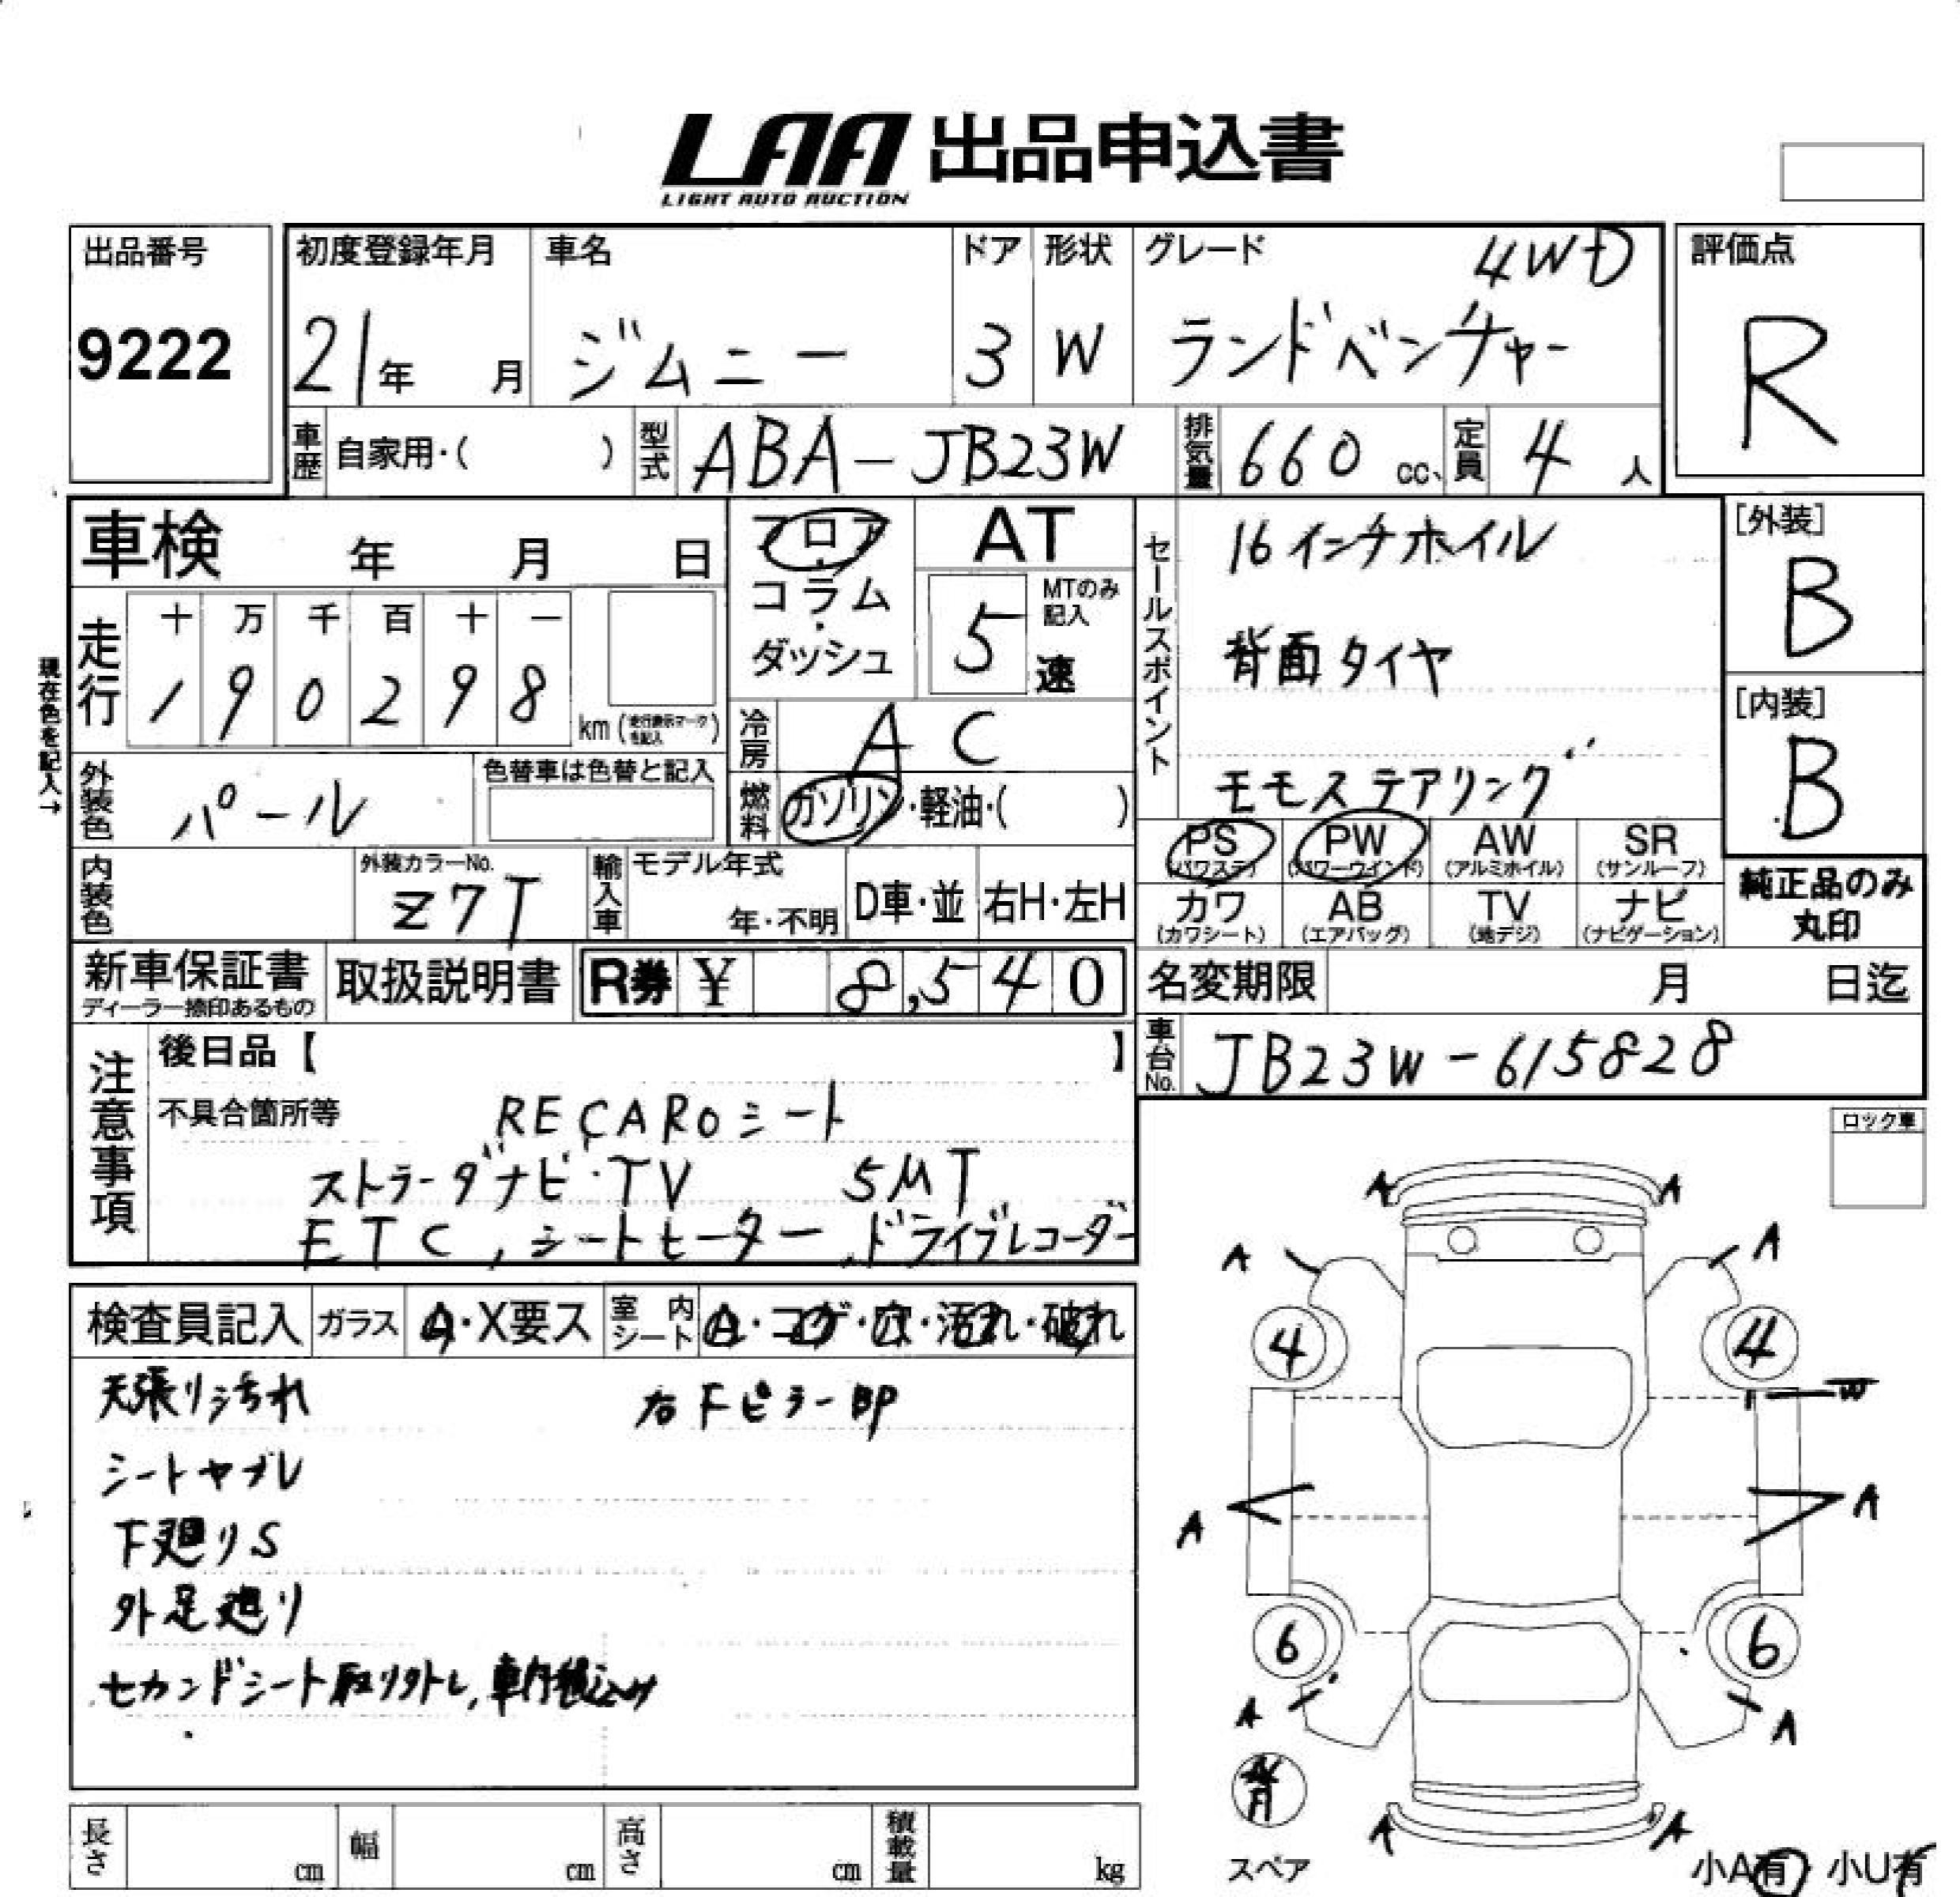 LAA 出品申込書
LIGHT AUTO AUCTION
出品番号
9222
初度登録年月
21年 月
車名
ジムニー
ドア
3
形状
W
グレード 4WD
ランドベンチャー
評価点
R
車歴 自家用・( )
型式 ABA-JB23W
排気量 660 cc、
定員 4 人
車検 年 月 日
現在色を記入→
走行 十 万 千 百 十 一
1 9 0 2 9 8
km (走行表示マークを記入)
フロア・
コラム・
ダッシュ
AT
5 速 MTのみ記入
セールスポイント
16インチホイル
背面タイヤ
モモステアリング
[外装]
B
[内装]
B
外装色 パール
色替車は色替と記入
冷房 AC
燃料 ガソリン・軽油・( )
PS (パワステ)
PW (パワーウインド)
AW (アルミホイル)
SR (サンルーフ)
カワ (カワシート)
AB (エアバッグ)
TV (地デジ)
ナビ (ナビゲーション)
純正品のみ
丸印
内装色
外装カラーNo.
Z7T
輸入車 モデル年式
年・不明
D車・並
右H・左H
新車保証書
ディーラー捺印あるもの
取扱説明書
R券 ¥ 8,540
名変期限 月 日迄
車台No. JB23W-615828
注意事項
後日品【 】
不具合箇所等 RECAROシート
ストラーダナビ・TV 5MT
ETC, シートヒーター, ドライブレコーダー
ロック車
検査員記入 ガラス A・X要ス 室内シート A・コゲ・穴・汚れ・破れ
天張り汚れ 右Fピラー BP
シートヤブレ
下廻りS
外足廻り
セカンドシート取り外し,車内積込み
A A
A A
4 4
W
A A
6 6
A A
背
スペア
A A
小A有・小U有
長さ cm 幅 cm 高さ cm 積載量 kg